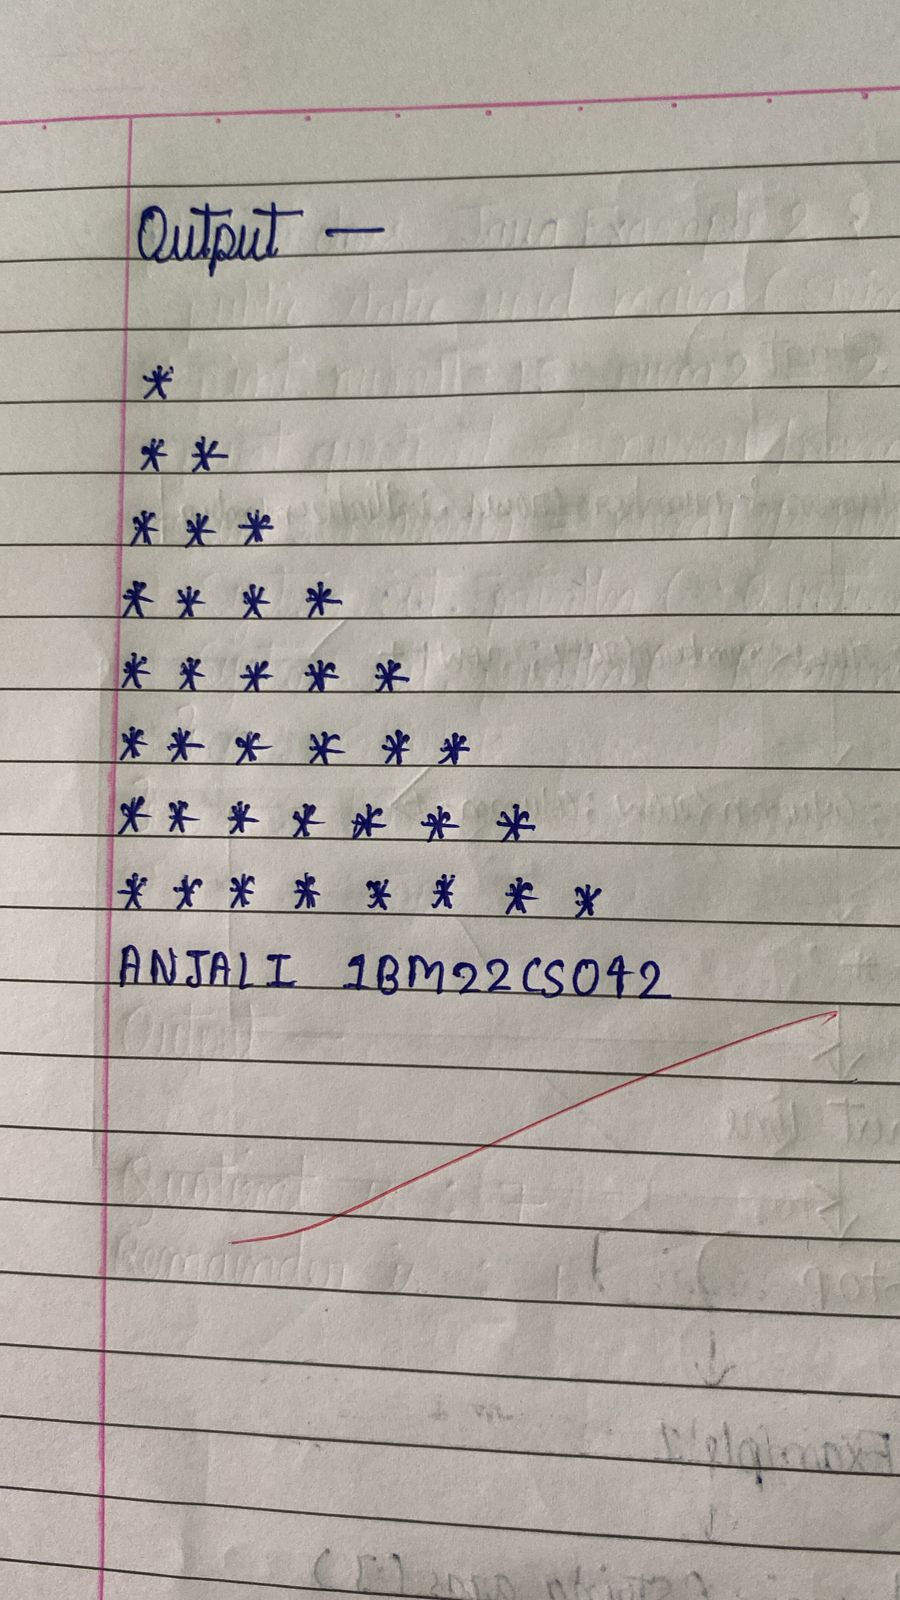 Output —
*
* *
* * *
* * * *
* * * * *
* * * * * *
* * * * * * *
* * * * * * * *
ANJALI 1BM22CS042